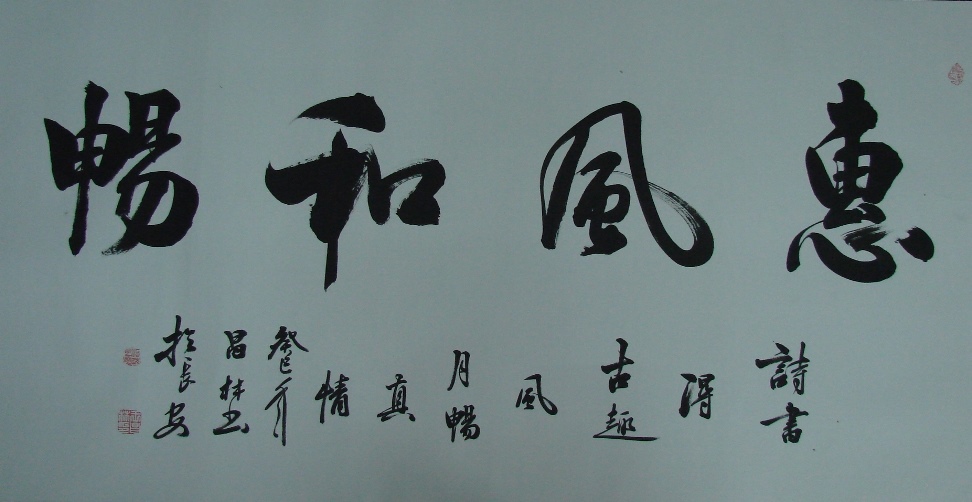 惠風和暢
詩書
得
古趣
風
月暢
真
情
癸巳年
昌林书
於長安